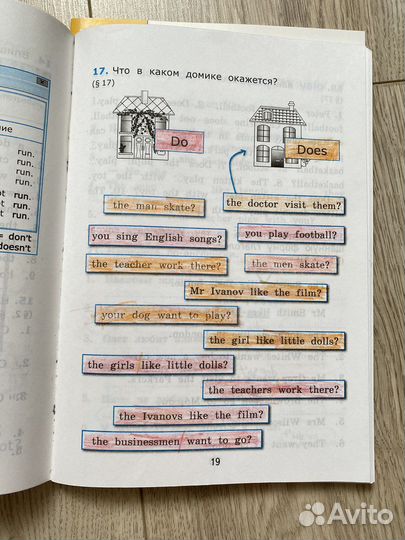 17. Что в каком домике окажется?
(§ 17)
Do
Does
the man skate?
the doctor visit them?
you sing English songs?
you play football?
the teacher work there?
the men skate?
Mr Ivanov like the film?
your dog want to play?
the girl like little dolls?
the girls like little dolls?
the teachers work there?
the Ivanovs like the film?
the businessmen want to go?
19
run.
run.
run.
run.
not run.
not run.
not run.
= don't
doesn't
Avito